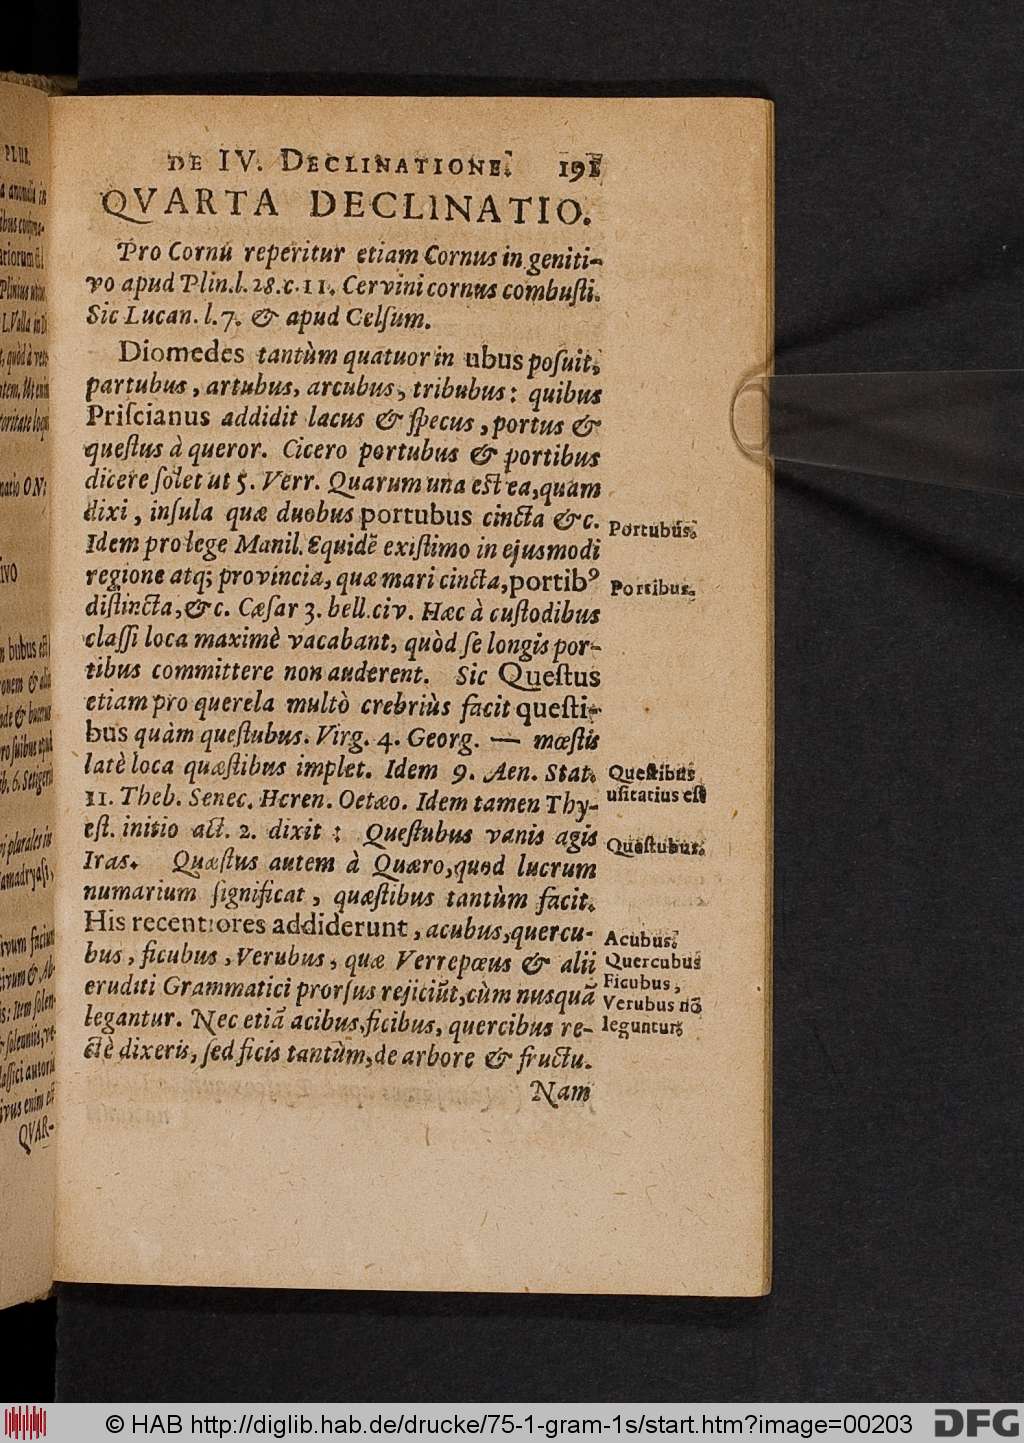 DE IV. DECLINATIONE. 191
QVARTA DECLINATIO.
Pro Cornu reperitur etiam Cornus in geniti-
vo apud Plin. l. 28. c. 11. Cervini cornus combusti.
Sic Lucan. l. 7. & apud Celsum.
Diomedes tantùm quatuor in ubus posuit,
partubus, artubus, arcubus, tribubus: quibus
Priscianus addidit lacus & specus, portus &
questus à queror. Cicero portubus & portibus
dicere solet ut 5. Verr. Quarum una est ea, quam
dixi, insula quæ duobus portubus cincta &c.
Portubus.
Idem pro lege Manil. Equidē existimo in ejusmodi
regione atq; provincia, quæ mari cincta, portibꝰ
Portibus.
distincta, &c. Cæsar 3. bell. civ. Hæc à custodibus
classi loca maximè vacabant, quòd se longis por-
tibus committere non auderent. Sic Questus
etiam pro querela multò crebriùs facit questi-
bus quàm questubus. Virg. 4. Georg. — mœstis
latè loca quæstibus implet. Idem 9. Aen. Stat.
Questibus
11. Theb. Senec. Heren. Oetæo. Idem tamen Thy-
usitatius est
est. initio act. 2. dixit: Questubus vanis agis
Questubus.
Iras. Quæstus autem à Quæro, quod lucrum
numarium significat, quæstibus tantùm facit.
His recentiores addiderunt, acubus, quercu-
Acubus.
bus, ficubus, Verubus, quæ Verrepæus & alii
Quercubus
Ficubus,
eruditi Grammatici prorsus rejiciūt, cùm nusquā
Verubus nō
legantur. Nec etiā acibus, ficibus, quercibus re-
leguntur;
ctè dixeris, sed ficis tantùm, de arbore & fructu.
Nam
PLUR.
QVAR-
© HAB http://diglib.hab.de/drucke/75-1-gram-1s/start.htm?image=00203
DFG